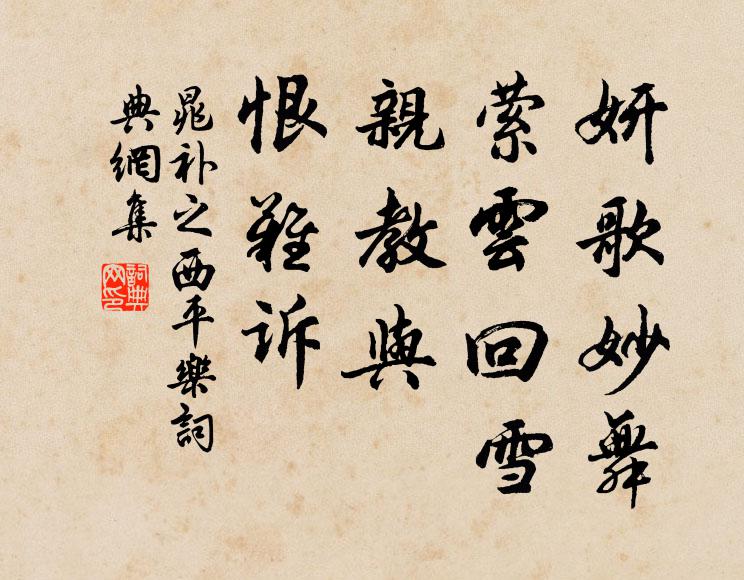 妍歌妙舞
縈雲回雪
親教與
恨難訴
晁补之西平樂詞
典網集
詞典網印